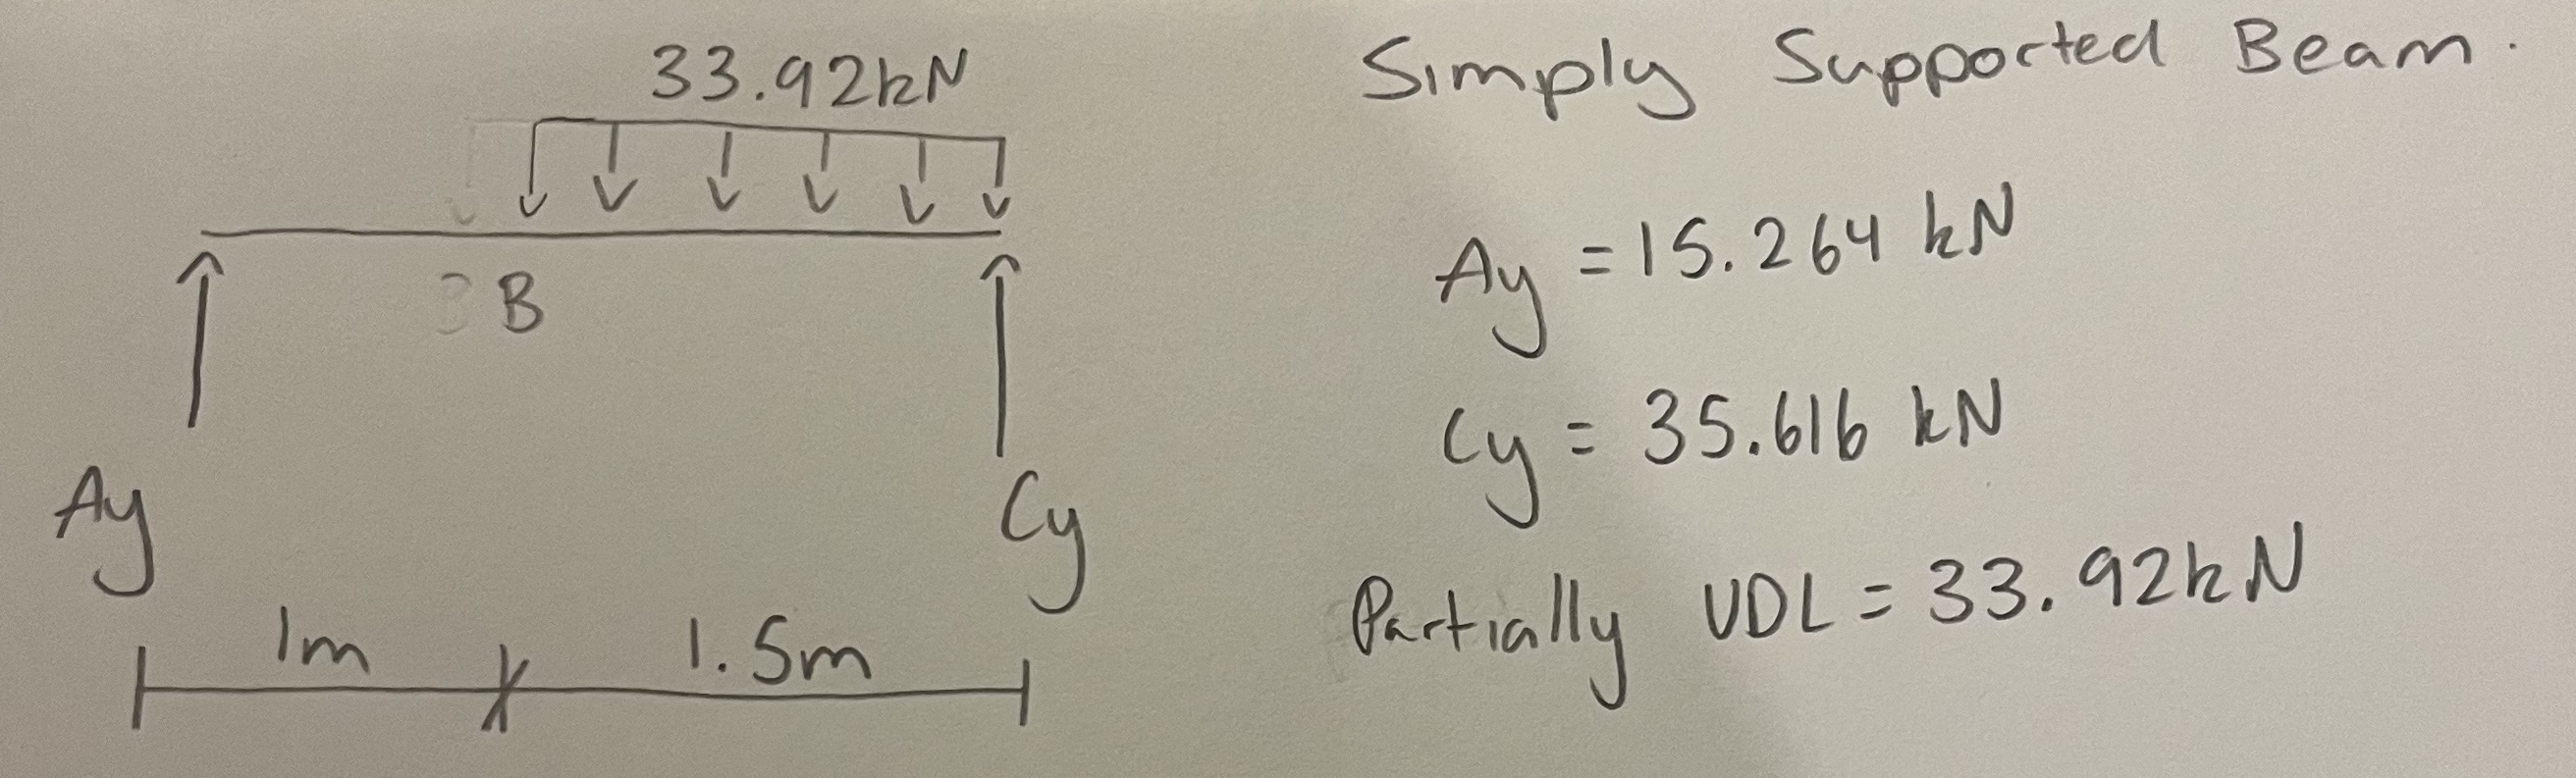 33.92kN
B
Ay
Cy
1m
1.5m
Simply Supported Beam.
Ay = 15.264 kN
Cy = 35.616 kN
Partially UDL = 33.92kN